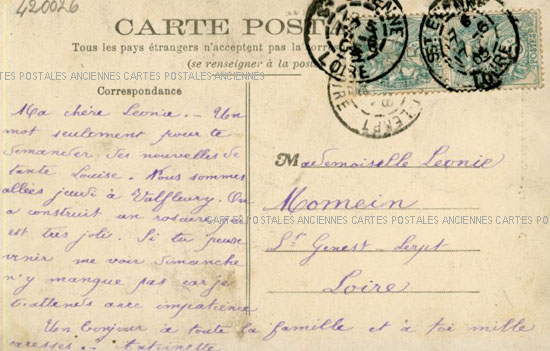 420026
CARTE POST
Tous les pays étrangers n'acceptent pas la corres
(se renseigner à la poste
CARTES POSTALES ANCIENNES CARTES POSTALES ANCIENNES
Correspondance
Ma chère Leonie. - Un
mot seulement pour te
demander des nouvelles de
tante Louise. Nous sommes
allées jeudi à Valfleury. On
a construit un rosaire qui
est très joli. Si tu peux
venir me voir dimanche
n'y manque pas car je
t'attends avec impatience
Un bonjour à toute la famille et à toi mille
caresses. - Antoinette
Mademoiselle Leonie
Momein
CARTES POSTALES ANCIENNES CARTES POSTALES ANCIENNES CARTES POS
St Genest-Lerpt
Loire
ST ETIENNE
LOIRE
LERPT
LOIRE